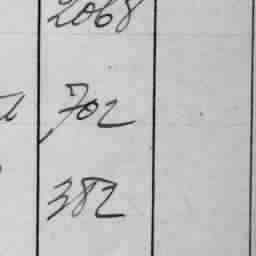 2068
702
382